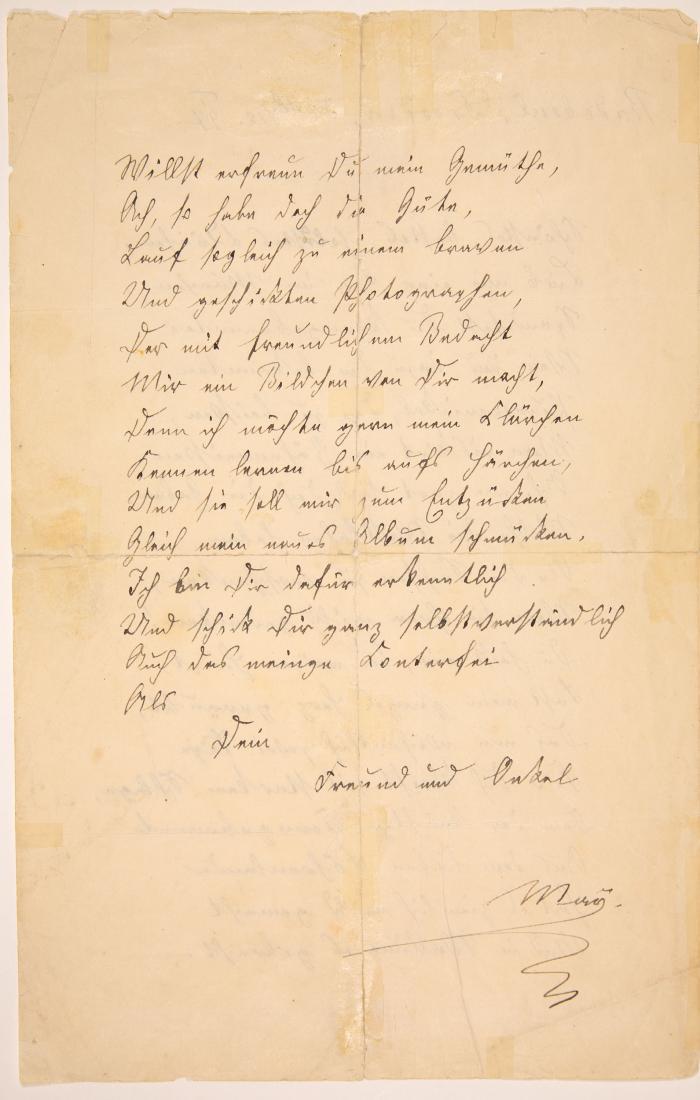 Willst erfreun Du mein Gemüthe,
Ach, so habe doch die Güte,
Lauf sogleich zu einem braven
Und geschickten Photographen,
Der mit freundlichem Bedacht
Mir ein Bildchen von Dir macht,
Denn ich möchte gern mein Clärchen
Kennen lernen bis aufs Härchen,
Und sie soll mir zum Entzücken
Gleich mein neues Album schmücken.
Ich bin Dir dafür erkenntlich
Und schick Dir ganz selbstverständlich
Auch das meinge Conterfei
Als
Dein
Freund und Onkel
May.